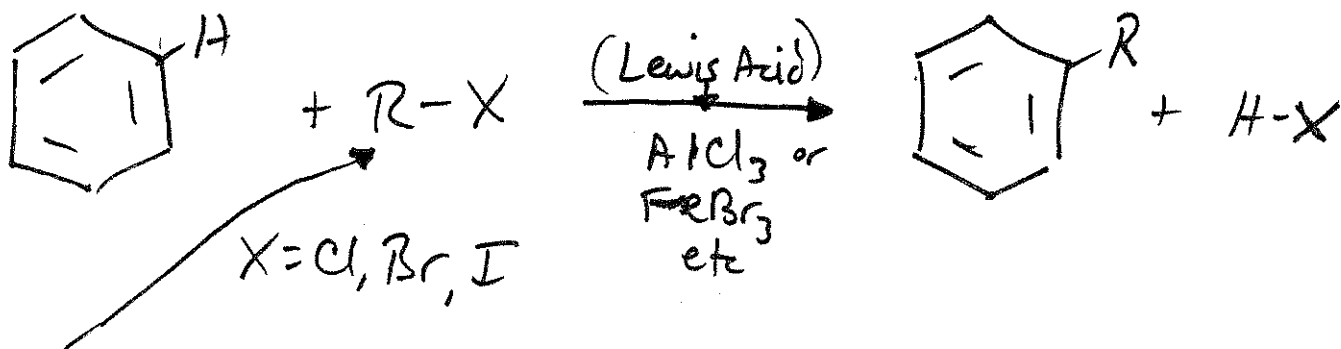 H
+ R-X
(Lewis Acid)
AlCl₃ or
FeBr₃
etc
R
+ H-X
X=Cl, Br, I